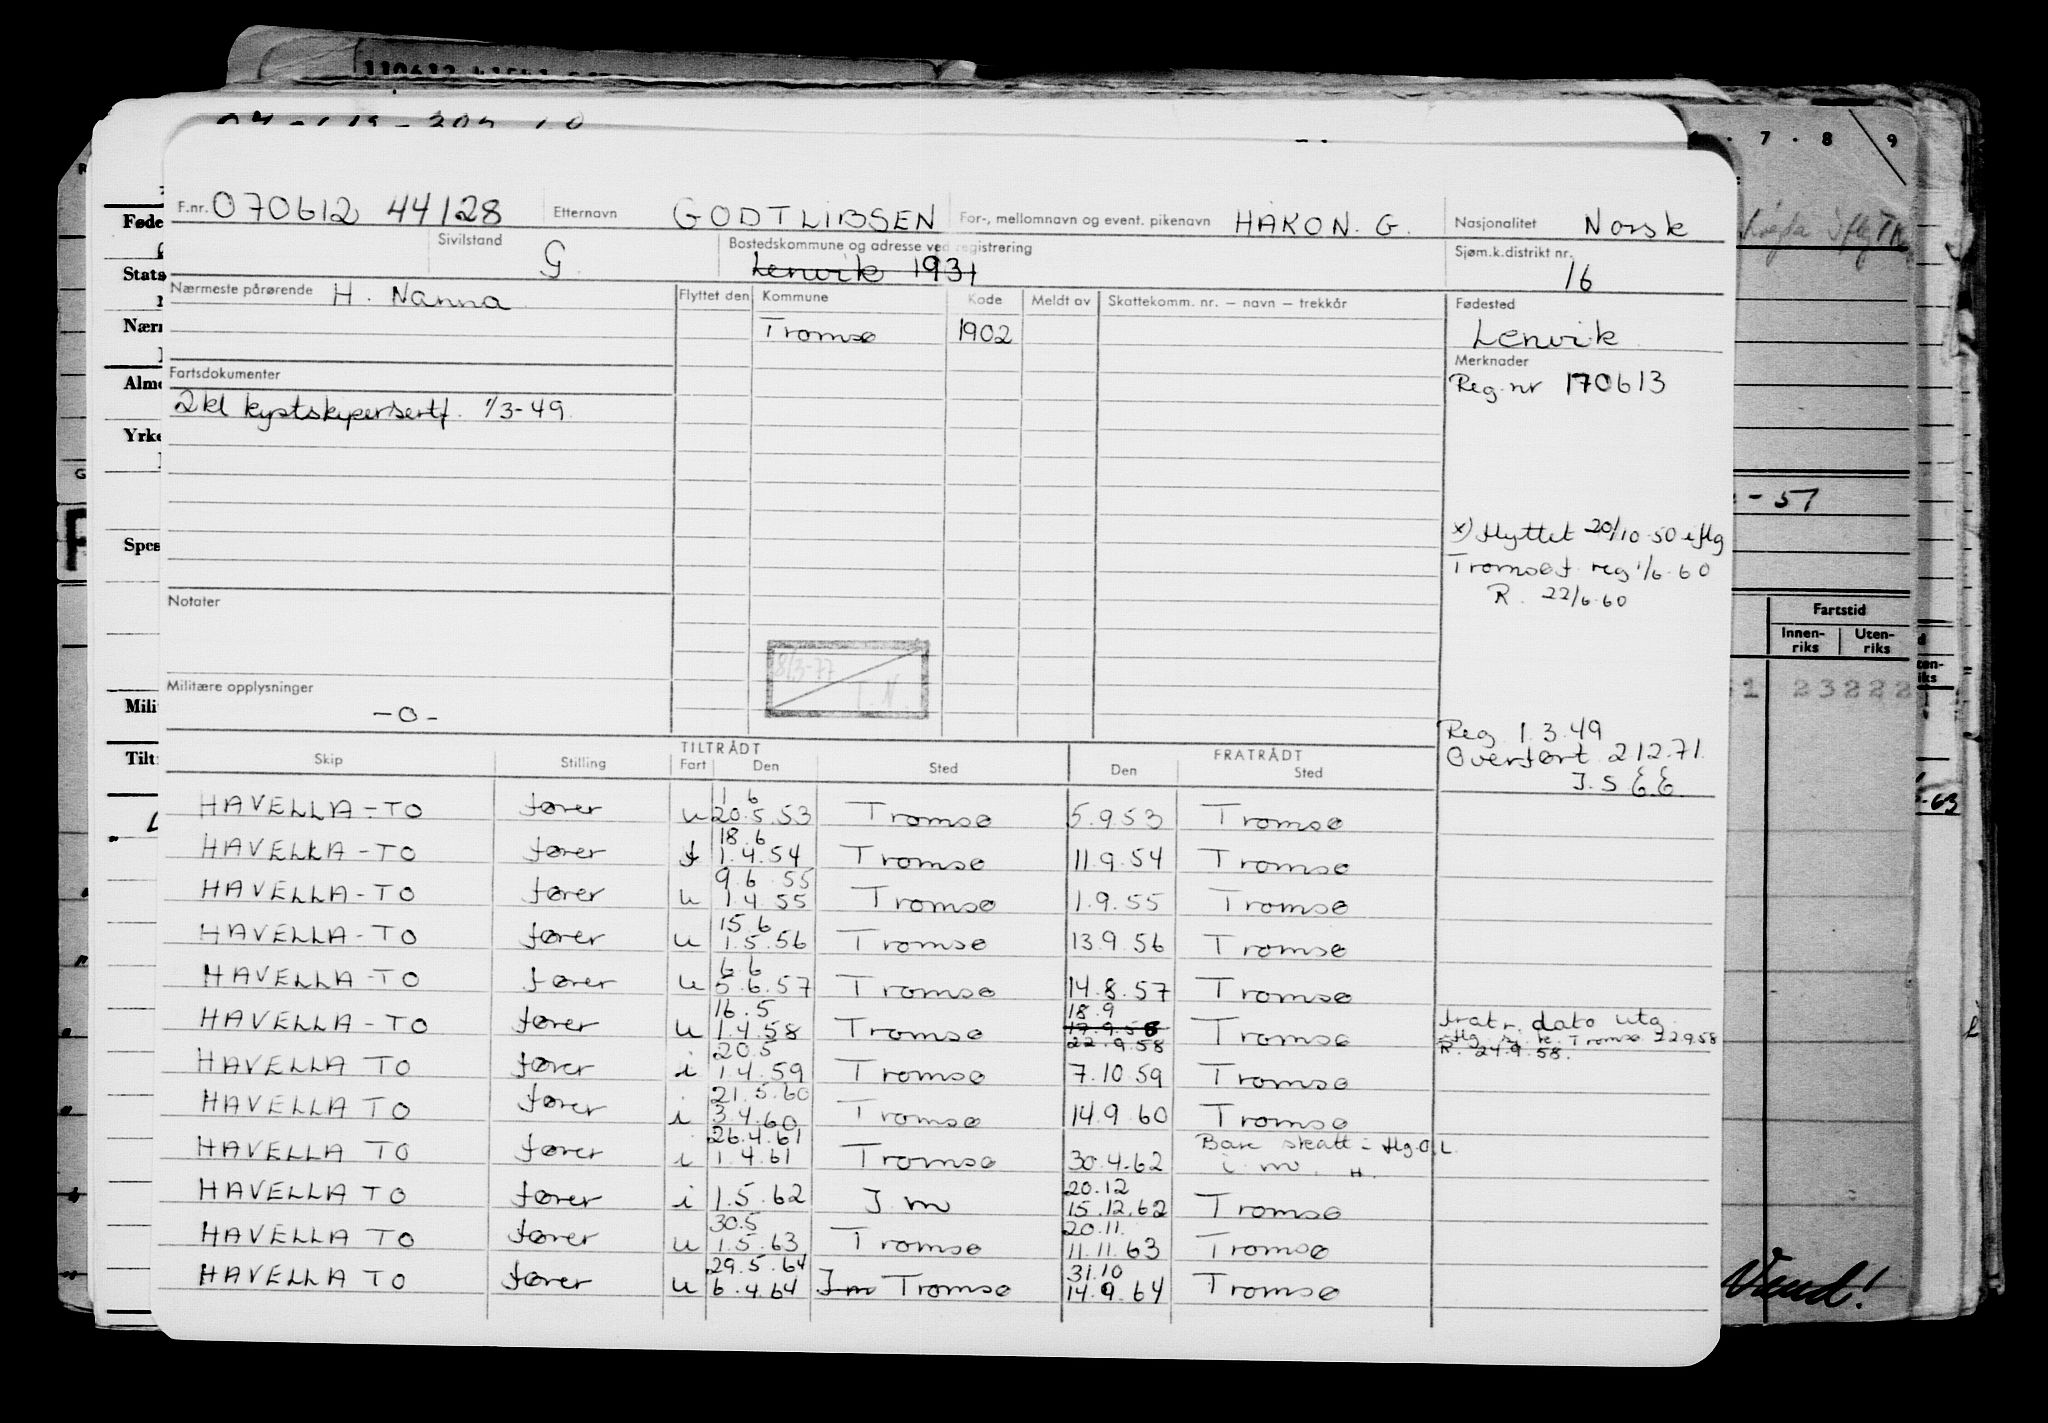 F.nr. 070612 44128 Etternavn GODTLIBSEN For-, mellomnavn og event. pikenavn HAKON. G. Nasjonalitet Norsk
Sivilstand G Bostedskommune og adresse ved registrering Lenvik 1931 Sjøm.k.distrikt nr. 16
Nærmeste pårørende H. Nanna Flyttet den Kommune Kode Meldt av Skattekomm. nr. – navn – trekkår Fødested
Tromsø 1902 Lenvik
Fartsdokumenter Merknader
Reg. nr 170613
2kl kystskippersertf. 1/3-49
x) flyttet 20/10-50 iflg
Tromsø f. reg 1/6-60
R. 22/6-60
Notater
8/3-77
T.N.
Militære opplysninger
-0-
Reg. 1.3.49
Overført 2.12.71
J.S E.E.
TILTRÅDT FRATRÅDT
Skip Stilling Fart Den Sted Den Sted
1 6
HAVELLA-TO fører u 20.5.53 Tromsø 5.9.53 Tromsø
18.6
HAVELLA-TO fører f 1.4.54 Tromsø 11.9.54 Tromsø
9.6.55
HAVELLA-TO fører u 1.4.55 Tromsø 1.9.55 Tromsø
15.6
HAVELLA-TO fører u 1.5.56 Tromsø 13.9.56 Tromsø
6.6
HAVELLA-TO fører u 5.6.57 Tromsø 14.8.57 Tromsø
16.5 18.9
HAVELLA-TO fører u 1.4.58 Tromsø 17.9.58 Tromsø fratr. dato utg.
22.9.58 Tromsø 22.9.58
R. 24.9.58.
20.5
HAVELLA TO fører i 1.4.59 Tromsø 7.10.59 Tromsø
21.5.60
HAVELLA TO fører i 3.4.60 Tromsø 14.9.60 Tromsø
26.4.61 Bare skatt - flg. O.L.
HAVELLA TO fører i 1.4.61 Tromsø 30.4.62 i. m. H.
20.12
HAVELLA TO fører i 1.5.62 I m 15.12.62 Tromsø
30.5 20.11.
HAVELLA TO fører u 1.5.63 Tromsø 11.11.63 Tromsø
29.5.64 31.10
HAVELLA TO fører u 6.4.64 I m Tromsø 14.9.64 Tromsø
7 · 8 9
- 57
Fartstid
Innen-riks Uten-riks
1 23222
Vend!
Føde
Stats
Nær
Alme
Yrke
Spes
Mili
Tilt